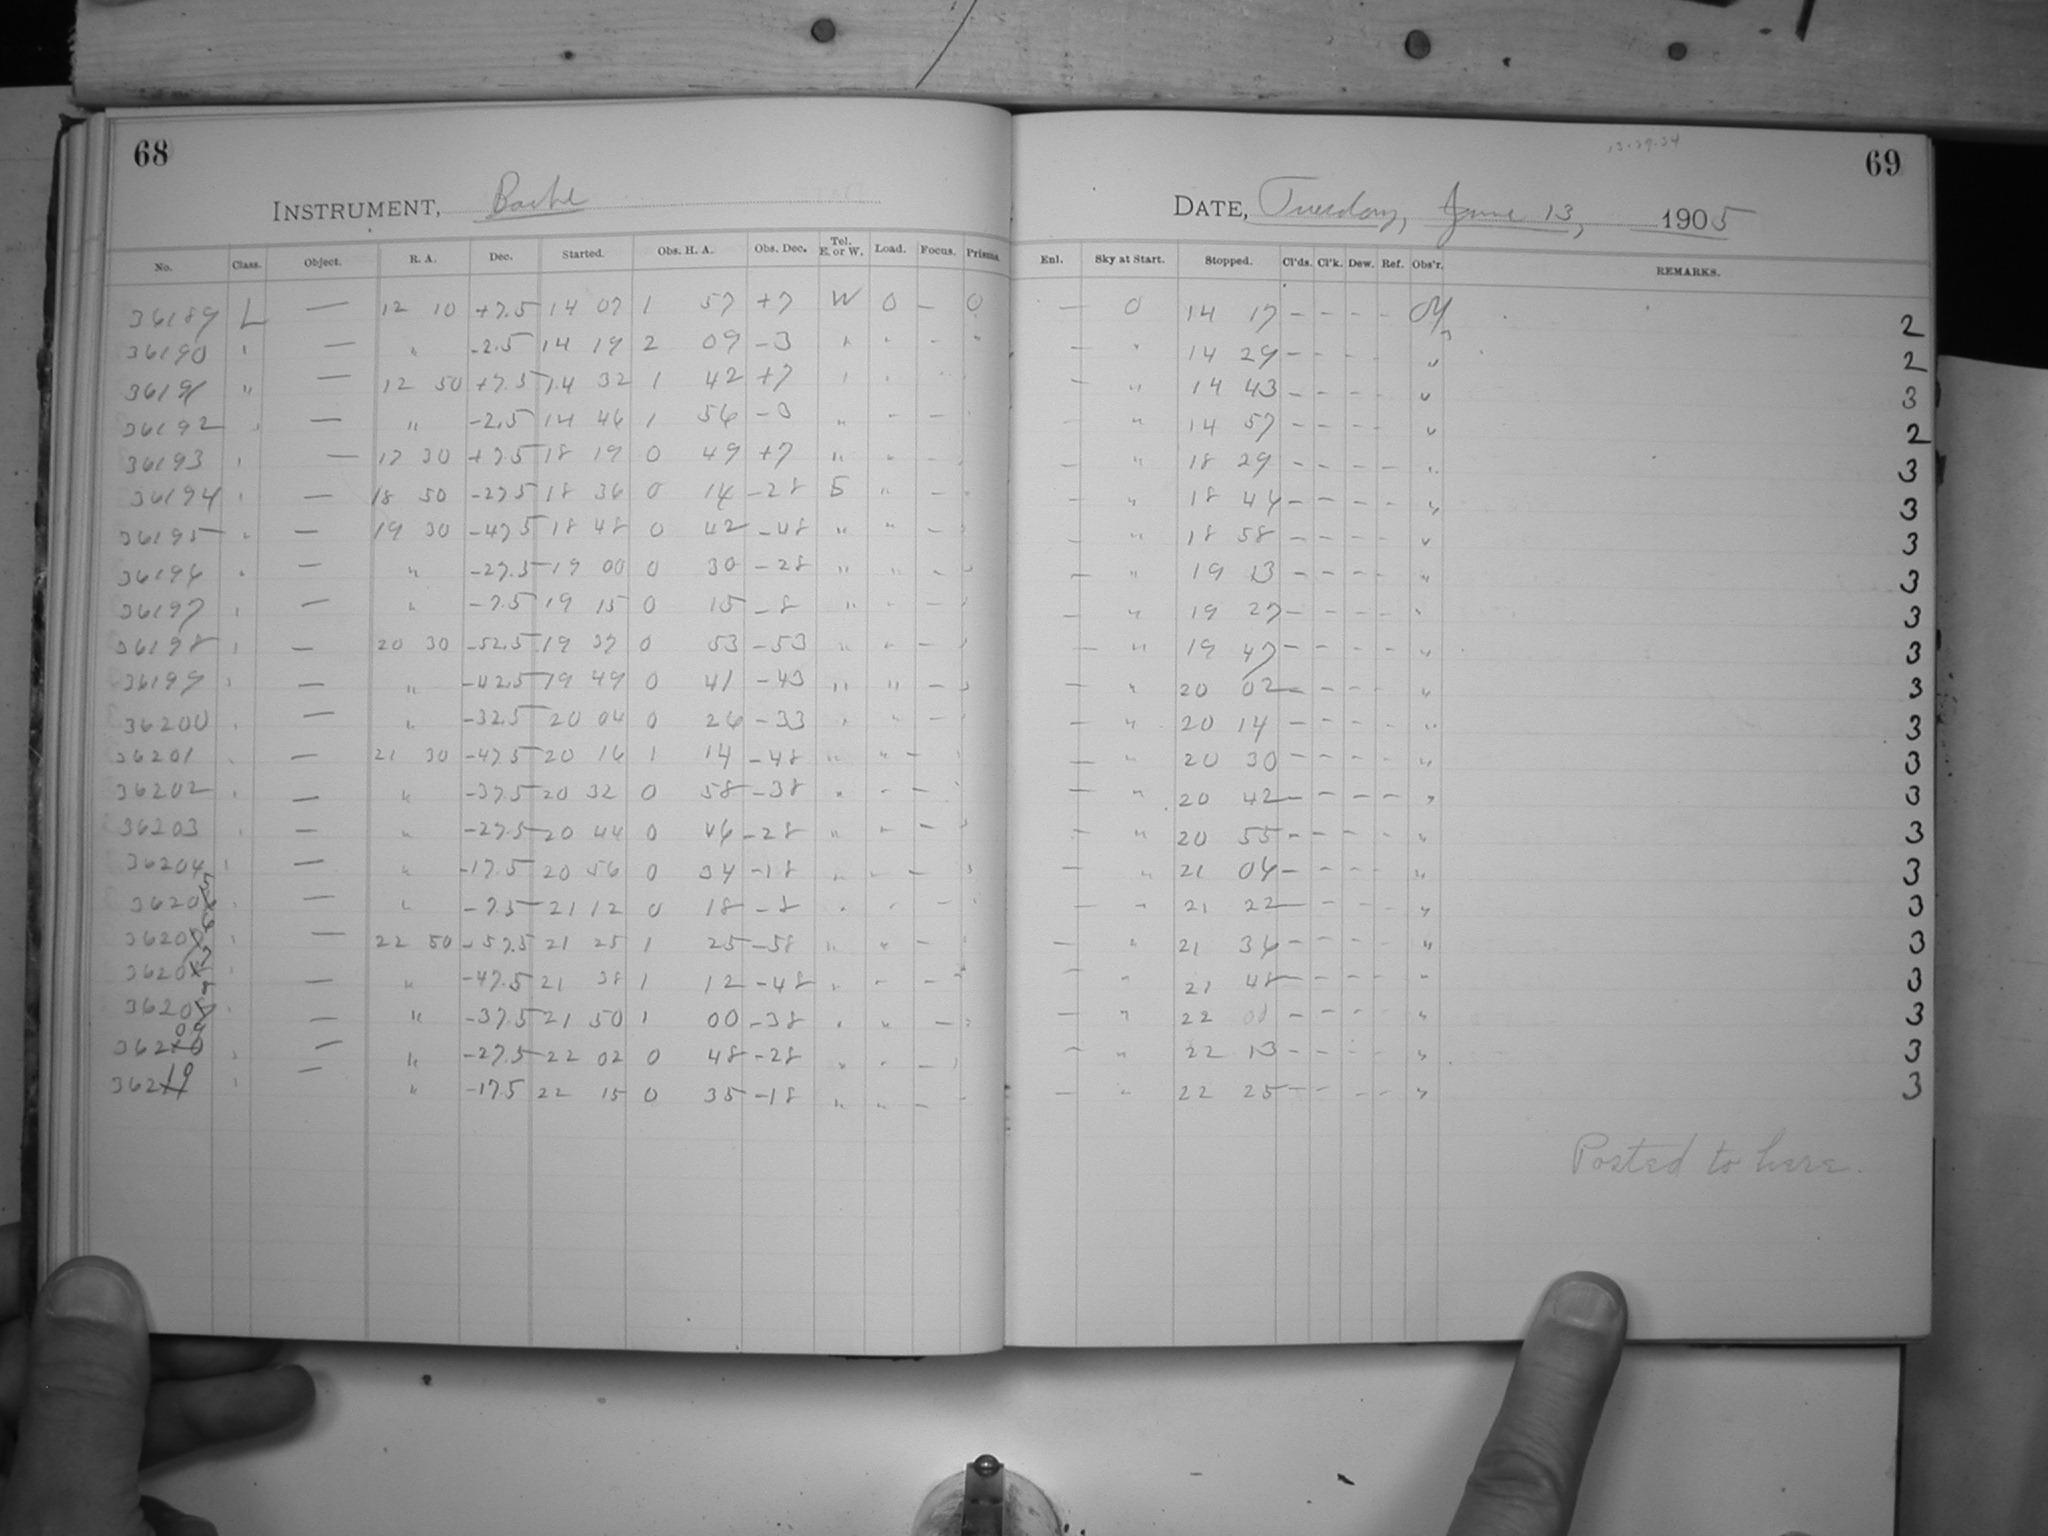 68
INSTRUMENT, Bache
No. Class. Object. R. A. Dec. Started. Obs. H. A. Obs. Dec. Tel. E. or W. Load. Focus. Prisms.
36189 L — 12 10 +7.5 14 07 1 57 +7 W 0 — 0
36190 " — " -2.5 14 19 2 09 -3 " " — "
36191 " — 12 50 +7.5 14 32 1 42 +7 " " — "
36192 " — " -2.5 14 46 1 56 -3 " " — "
36193 " — 17 30 +7.5 18 19 0 49 +7 " " — "
36194 " — 18 50 -27.5 18 36 0 14 -28 E " — "
36195 " — 19 30 -47.5 18 48 0 42 -48 " " — "
36196 " — " -27.5 19 00 0 30 -28 " " — "
36197 " — " -7.5 19 15 0 15 -8 " " — "
36198 " — 20 30 -52.5 19 37 0 53 -53 " " — "
36199 " — " -42.5 19 49 0 41 -43 " " — "
36200 " — " -32.5 20 04 0 26 -33 " " — "
36201 " — 21 30 -47.5 20 16 1 14 -48 " " — "
36202 " — " -37.5 20 32 0 58 -38 " " — "
36203 " — " -27.5 20 44 0 46 -28 " " — "
36204 " — " -17.5 20 56 0 34 -18 " " — "
36205 " — " -7.5 21 12 0 18 -8 " " — "
36206 " — 22 50 -57.5 21 25 1 25 -58 " " — "
36207 " — " -47.5 21 38 1 12 -48 " " — "
36208 " — " -37.5 21 50 1 00 -38 " " — "
36209 " — " -27.5 22 02 0 48 -28 " " — "
36210 " — " -17.5 22 15 0 35 -18 " " — "
69
DATE, Tuesday, June 13, 1905
Enl. Sky at Start. Stopped. Cl'ds. Cl'k. Dew. Ref. Obs'r. REMARKS.
— 0 14 17 — — — — 2
— " 14 29 — — — — " 2
— " 14 43 — — — — " 3
— " 14 57 — — — — " 2
— " 18 29 — — — — " 3
— " 18 44 — — — — " 3
— " 18 58 — — — — " 3
— " 19 13 — — — — " 3
— " 19 27 — — — — " 3
— " 19 47 — — — — " 3
— " 20 02 — — — — " 3
— " 20 14 — — — — " 3
— " 20 30 — — — — " 3
— " 20 42 — — — — " 3
— " 20 55 — — — — " 3
— " 21 06 — — — — " 3
— " 21 22 — — — — " 3
— " 21 36 — — — — " 3
— " 21 48 — — — — " 3
— " 22 00 — — — — " 3
— " 22 13 — — — — " 3
— " 22 25 — — — — " 3
Posted to here.